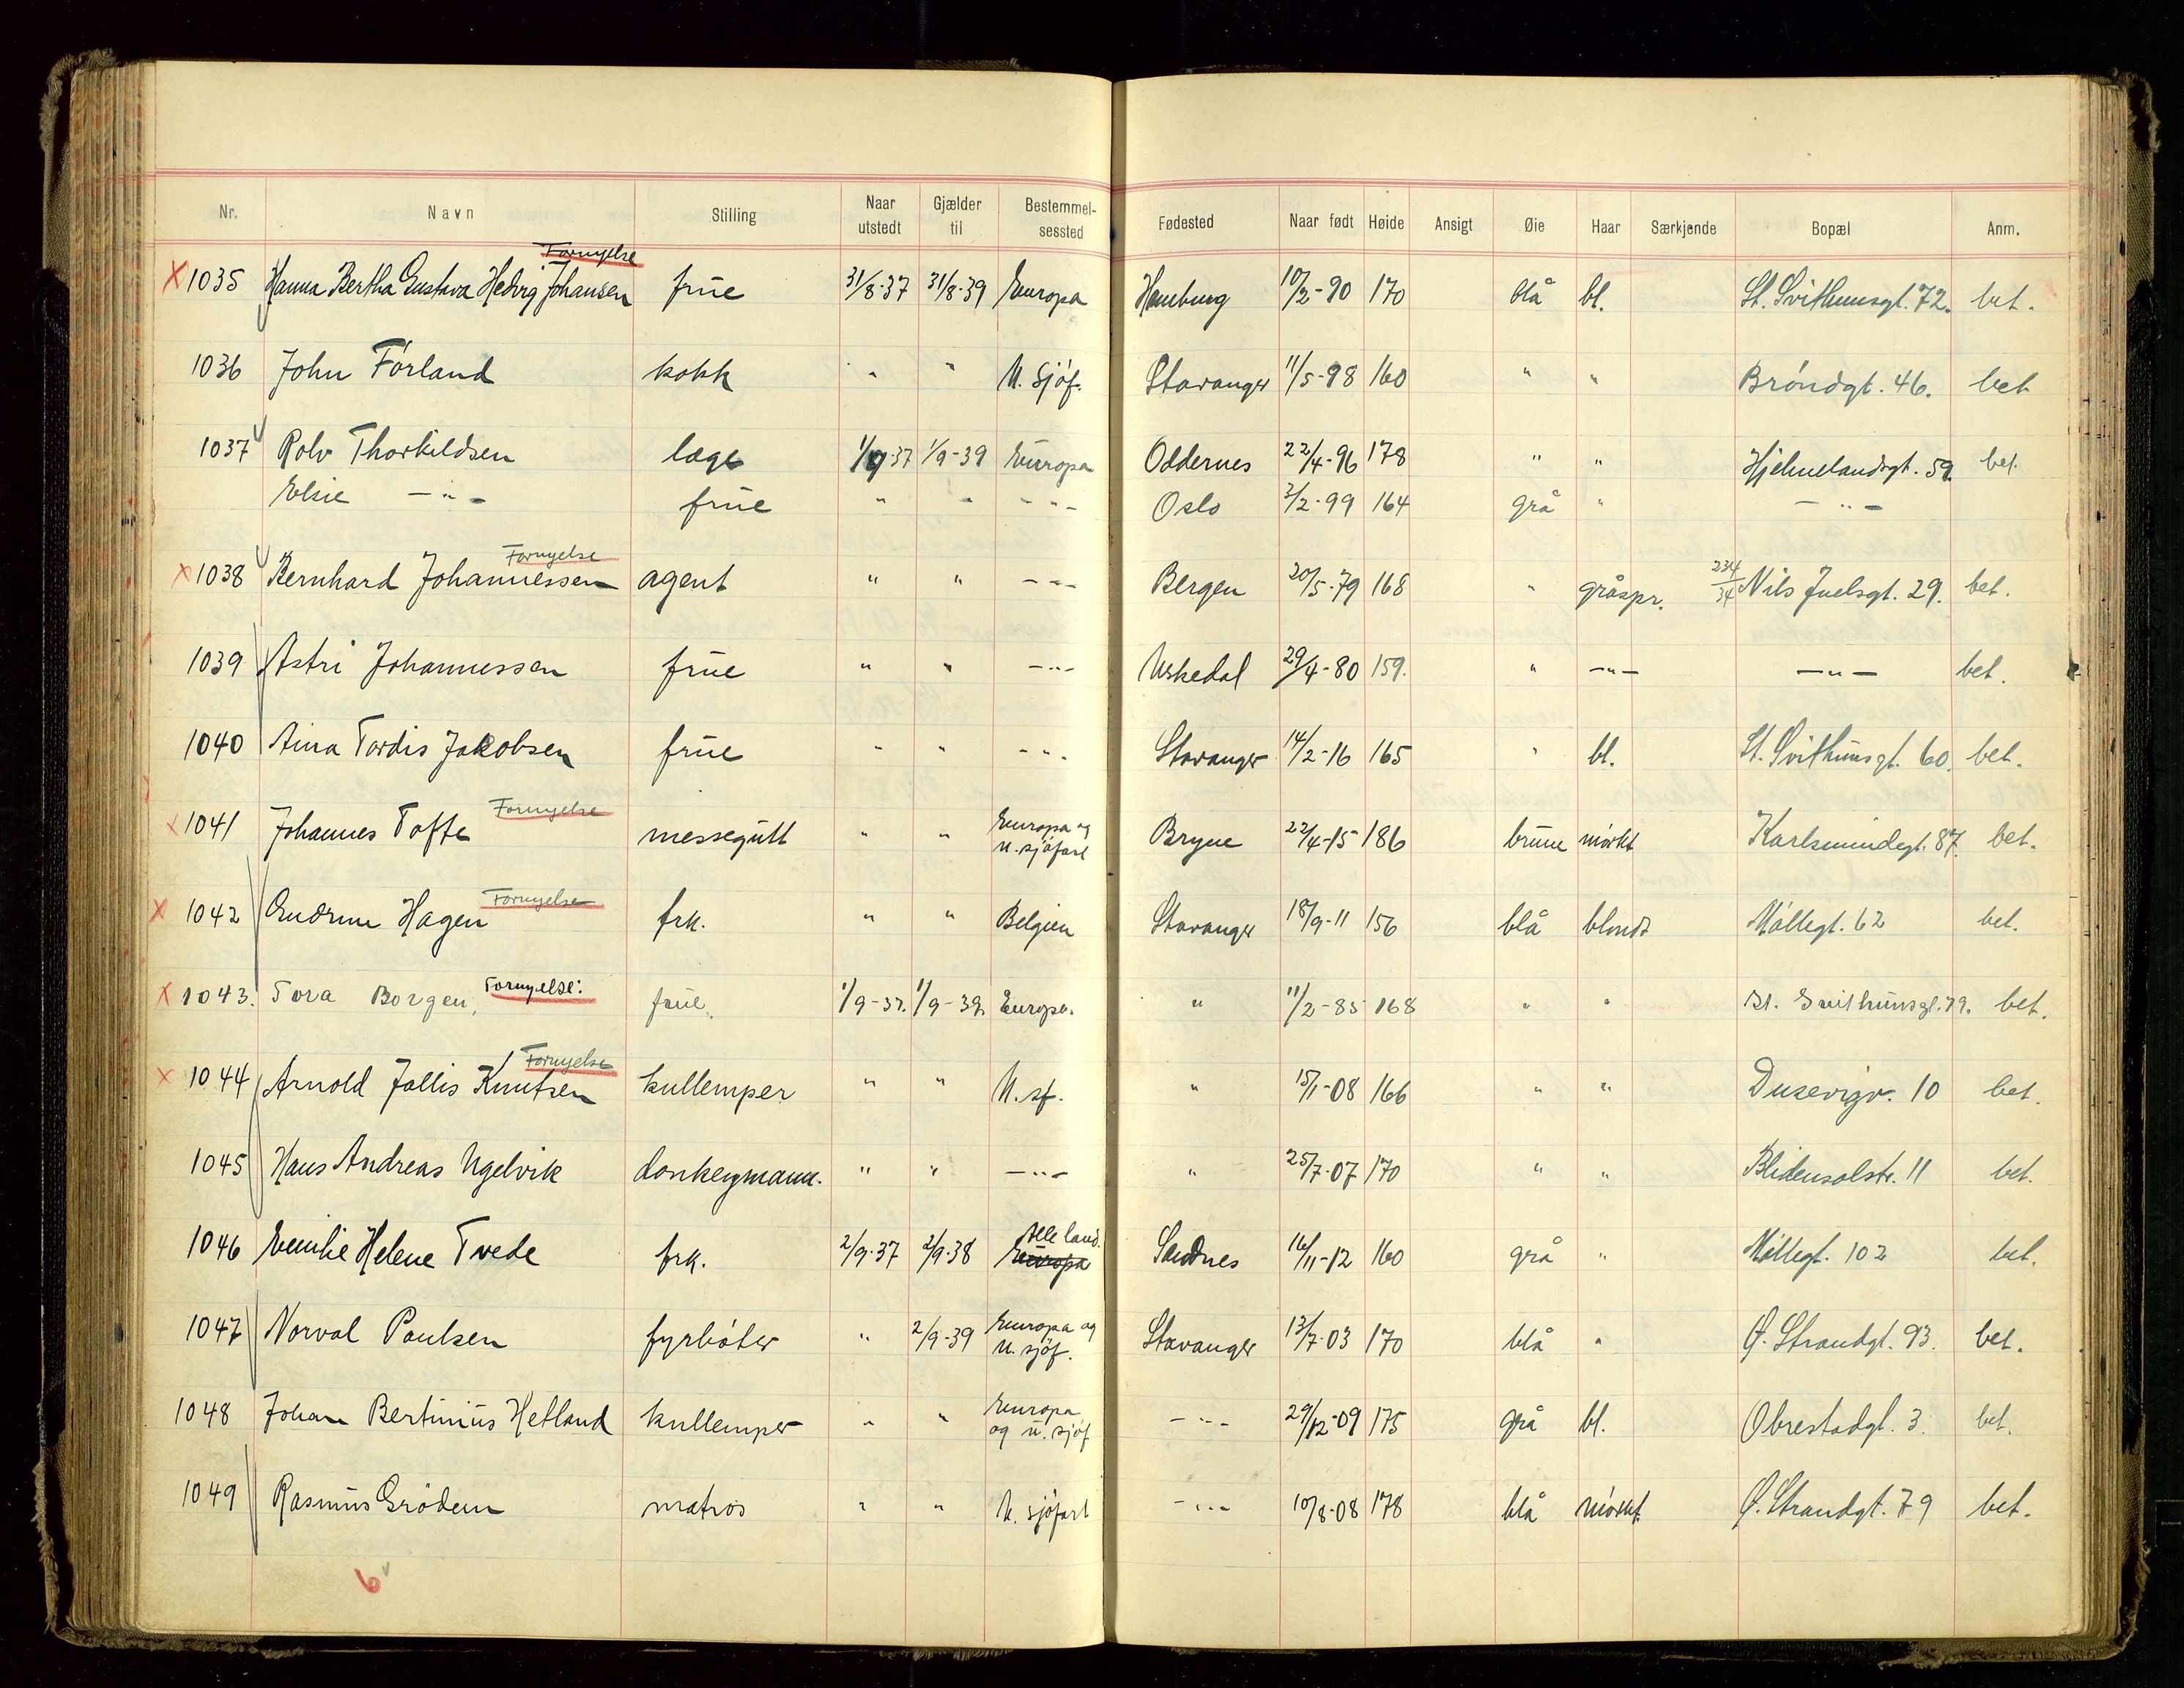 Nr. Navn Stilling Naar utstedt Gjælder til Bestemmelsessted Fødested Naar født Høide Ansigt Øie Haar Særkjende Bopæl Anm.
Fornyelse
X 1035 Hanna Bertha Gustava Hedvig Johansen frue 31/8-37 31/8-39 Europa Hamburg 10/2-90 170 blå bl. St. Svithunsgt. 72. bet.
1036 John Förland kokk " " U. sjöf. Stavanger 11/5-98 160 " " Bröndgt. 46. bet
1037 Rolv Thorkildsen læge 1/9-37 1/9-39 Europa Oddernes 22/4-96 178 " " Hjelmelandsgt. 59. bet.
Elsie — " — frue " " — " — Oslo 3/2-99 164 grå " — " —
Fornyelse
X 1038 Bernhard Johannessen agent " " — " — Bergen 20/5-79 168 " gråspr. 234/34 Nils Juelsgt. 29. bet.
1039 Astri Johannessen frue " " — " — Uskedal 29/4-80 159. " — " — — " — bet.
1040 Aina Tordis Jakobsen frue " " — " — Stavanger 14/2-16 165 " bl. St. Svithunsgt. 60. bet.
Fornyelse
X 1041 Johannes Tofte messegutt " " Europa og u. sjöfart Bryne 22/4-15 186 brune mörkt Karlsmindegt. 87. bet.
Fornyelse
X 1042 Gudrun Hagen frk. " " Belgien Stavanger 18/9-11 156 blå blondt Möllegt. 62 bet.
X 1043. Tora Borgen, Fornyelse: frue. 1/9-37. 1/9-39. Europa. " 11/2-85 168 " " St. Svithunsgt. 79. bet.
Fornyelse
X 1044 Arnold Jallis Knutsen kullemper " " U. sf. " 15/1-08 166 " " Dusevigv. 10 bet.
1045 Hans Andreas Ugelvik donkeymann. " " — " — " 25/7-07 170 " " Blidensolstr. 11 bet.
Alle land.
1046 Emilie Helene Tvede frk. 2/9-37 2/9-38 Europa Sandnes 16/11-12 160 grå " Möllegt. 102 bet.
1047 Norval Paulsen fyrböter " 2/9-39 Europa og u. sjöf. Stavanger 13/7-03 170 blå " Ø. Strandgt. 93. bet.
1048 Johan Bertinius Hetland kullemper " " Europa og u. sjöf — " — 29/12-09 175 grå bl. Obrestadgt. 3. bet.
1049 Rasmus Grödem matros " " U. sjöfart — " — 10/8-08 178 blå mörkt. Ø. Strandgt. 79 bet.
6